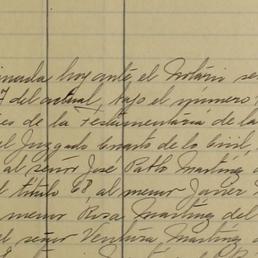 inada hoy ante el Notario se
7 del actual, bajo el número
es de la testamentaría de la
el Juzgado Cuarto de lo Civil,
al señor José Pablo Martínez
el título 68 al menor Javier
menor Rosa Martínez del
el señor Ventura Martínez